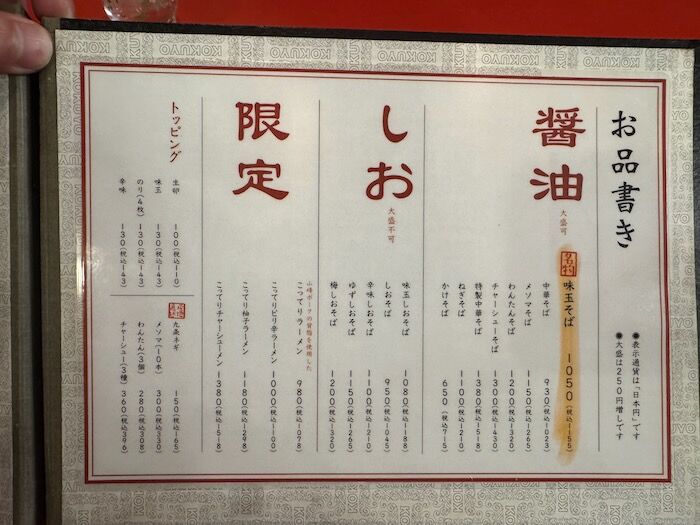 お品書き
●表示通貨は「日本円」です
●大盛は250円増しです
醤油
大盛可
名物
味玉そば 1050(税込1155)
中華そば 930(税込1023)
メンマそば 1150(税込1265)
わんたんそば 1200(税込1320)
チャーシューそば 1300(税込1430)
特製中華そば 1380(税込1518)
ねぎそば 1100(税込1210)
かけそば 650(税込715)
しお
大盛不可
味玉しおそば 1080(税込1188)
しおそば 950(税込1045)
辛味しおそば 1100(税込1210)
ゆずしおそば 1150(税込1265)
梅しおそば 1200(税込1320)
限定
山峰ポークの背脂を使用した
こってりラーメン 980(税込1078)
こってりピリ辛ラーメン 1000(税込1100)
こってり柚子ラーメン 1180(税込1298)
こってりチャーシューメン 1380(税込1518)
トッピング
生卵 100(税込110)
味玉 130(税込143)
のり(4枚) 130(税込143)
辛味 130(税込143)
九条ネギ 150(税込165)
メンマ(10本) 300(税込330)
わんたん(3個) 280(税込308)
チャーシュー(3種) 360(税込396)
KOKUYO